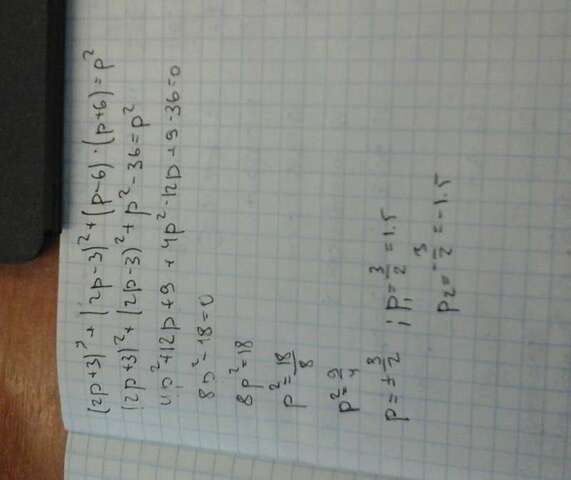 (2p+3)²+(2p-3)²+(p-6)·(p+6)=p²
(2p+3)²+(2p-3)²+p²-36=p²
4p²+12p+9+4p²-12p+9-36=0
8p²-18=0
8p²=18
p²=18/8
p²=9/4
p=±3/2 ; p₁=3/2=1.5
p₂=-3/2=-1.5